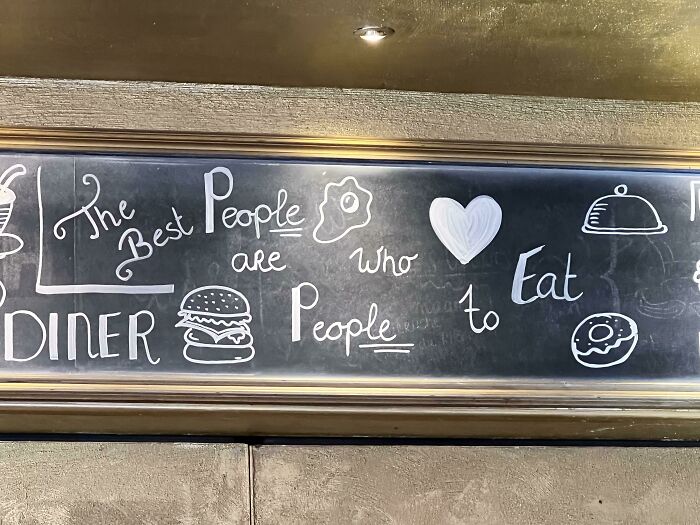 The Best People
are who
People to Eat
DINER